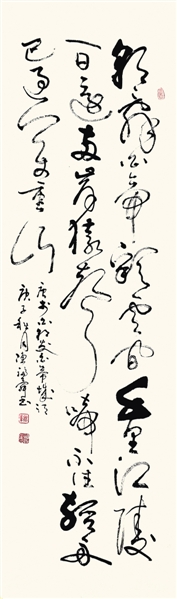 朝辞白帝彩雲间千里江陵
一日還两岸猿声啼不住輕舟
已過万重山
唐李白朝发白帝城詩
庚子秋月陳书